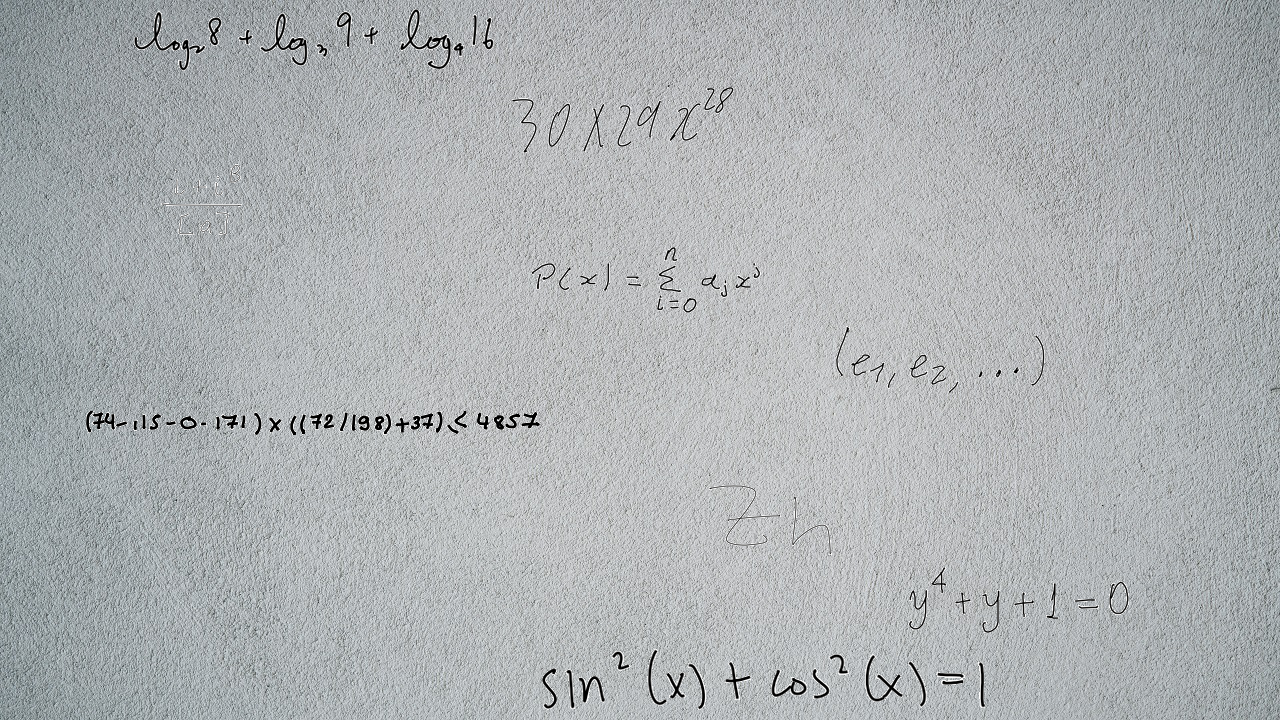 log₂8 + log₃9 + log₄16
30 x 29 x²⁸
P(x) = Σⁿᵢ₌₀ aⱼxʲ
(e₁, e₂, ...)
(74-.115-0.171)×((72/198)+37)<4857
Zh
y⁴+y+1=0
sin²(x)+cos²(x)=1